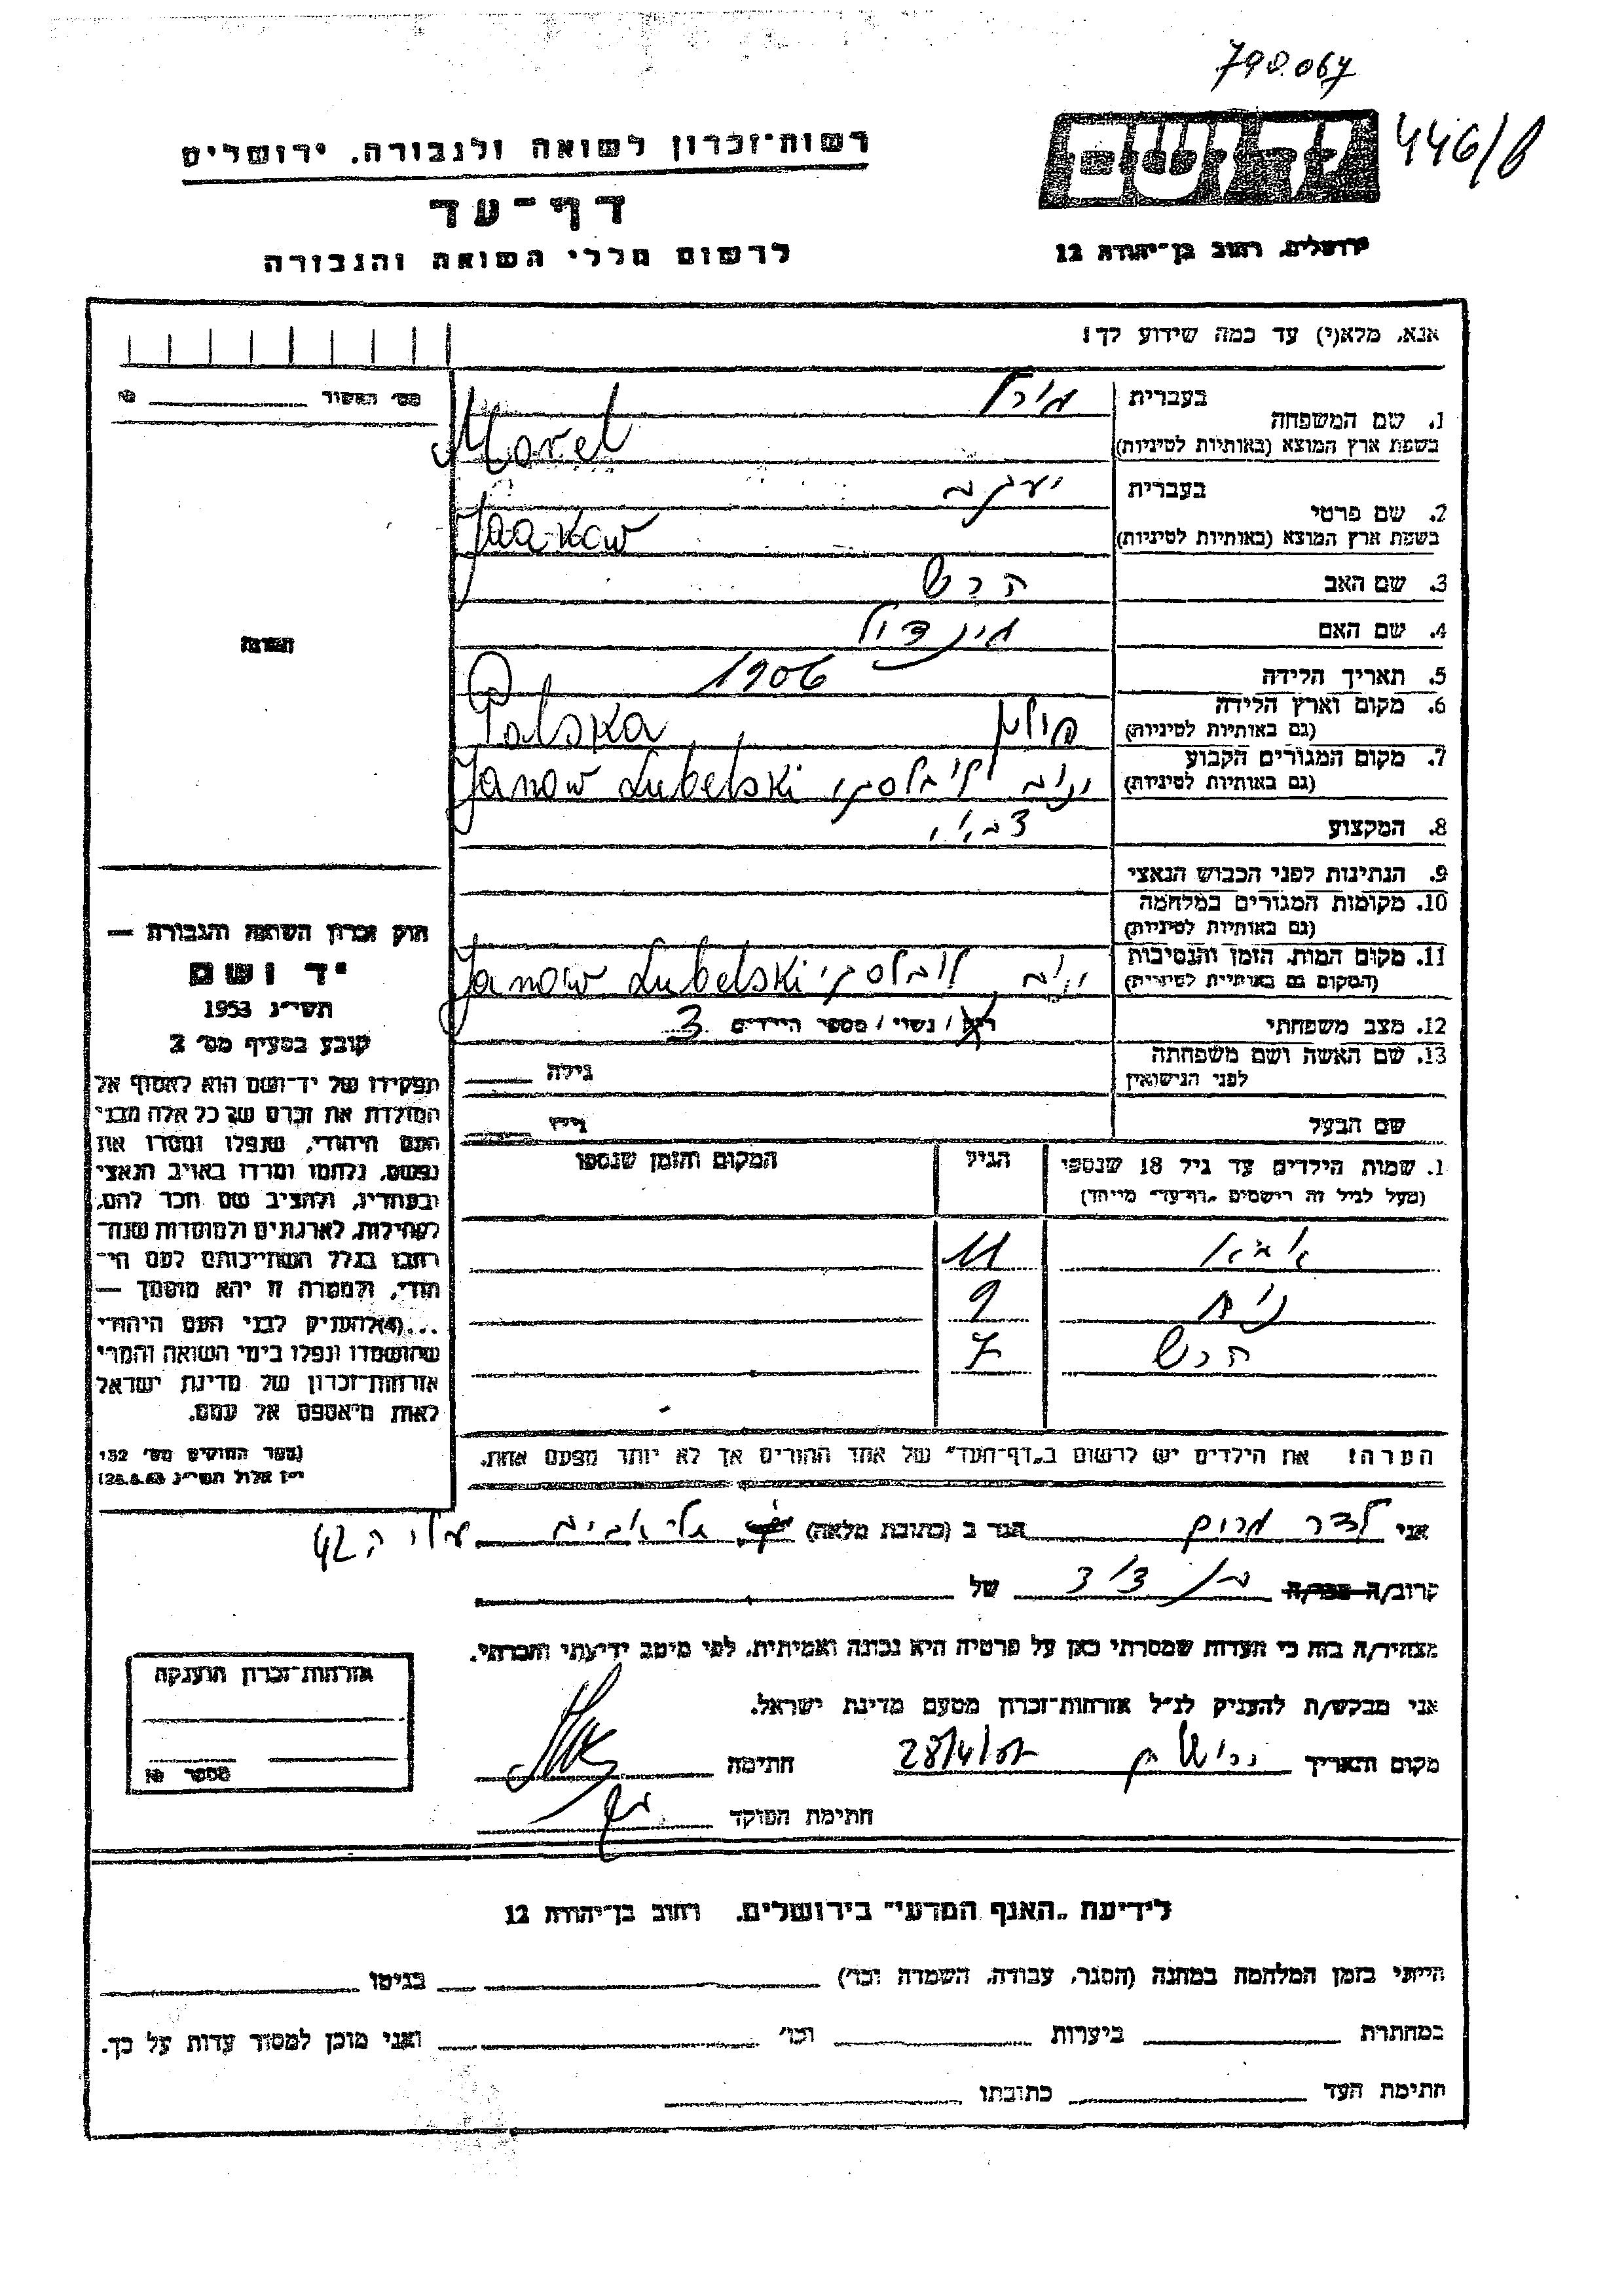 790.067
446/8
יד ושם
רשות־זכרון לשואה ולגבורה. ירושלים
דף־עד
לרשום חללי השואה והגבורה
ירושלים, רחוב בן־יהודה 12
אנא, מלא(י) עד כמה שידוע לך!
מס׳ האשור № 
1. שם המשפחה
בעברית
בשפת ארץ המוצא (באותיות לטיניות)
Morel
2. שם פרטי
בעברית יעקב
בשפת ארץ המוצא (באותיות לטיניות) Jaakow
3. שם האב הרש
4. שם האם מינדל
5. תאריך הלידה 1906
6. מקום וארץ הלידה
(גם באותיות לטיניות) פולין Polska
7. מקום המגורים הקבוע
(גם באותיות לטיניות) ינוב לובלסקי Janow Lubelski
8. המקצוע
9. הנתינות לפני הכבוש הנאצי
10. מקומות המגורים במלחמה
(גם באותיות לטיניות)
11. מקום המות, הזמן והנסיבות
(המקום גם באותיות לטיניות) ינוב לובלסקי Janow Lubelski
12. מצב משפחתי רוק / נשוי / מספר הילדים 3
13. שם האשה ושם משפחתה
לפני הנישואין גילה
שם הבעל גילו
1. שמות הילדים עד גיל 18 שנספו הגיל המקום והזמן שנספו
(מעל לגיל זה רושמים „דף־עד״ מיוחד)
11
9
הרש 7
הערה! את הילדים יש לרשום ב„דף־העד״ של אחד ההורים אך לא יותר מפעם אחת.
תמונה
חוק זכרון השואה והגבורה —
יד ושם
תשי״ג 1953
קובע בסעיף מס׳ 2
תפקידו של יד־ושם הוא לאסוף אל
המולדת את זכרם של כל אלה מבני
העם היהודי, שנפלו ומסרו את
נפשם, נלחמו ומרדו באויב הנאצי
ובעוזריו, ולהציב שם וזכר להם,
לקהילות, לארגונים ולמוסדות שנח־
רבו בגלל השתייכותם לעם היה־
הודי, ולמטרה זו יהא מוסמך —
...(4)להעניק לבני העם היהודי
שהושמדו ונפלו בימי השואה והמרי
אזרחות־זכרון של מדינת ישראל
לאות היאספם אל עמם.
(ספר החוקים מס׳ 132
י״ז אלול תשי״ג 28.8.53)
אני הגר ב (כתובת מלאה) תל אביב 42
קרוב/ה מכר/ה בן דוד של
מצהיר/ה בזה כי העדות שמסרתי כאן על פרטיה היא נכונה ואמיתית, לפי מיטב ידיעתי והכרתי.
אני מבקש/ת להעניק לנ״ל אזרחות־זכרון מטעם מדינת ישראל.
מקום ותאריך 28/4/57 חתימה
חתימת הפוקד
אזרחות־זכרון הוענקה
מספר №
לידיעת „האגף המדעי״ בירושלים. רחוב בן־יהודה 12
הייתי בזמן המלחמה במחנה (הסגר, עבודה, השמדה וכו׳) בגיטו
במחתרת ביערות וכו׳ ואני מוכן למסור עדות על כך.
חתימת העד כתובתו